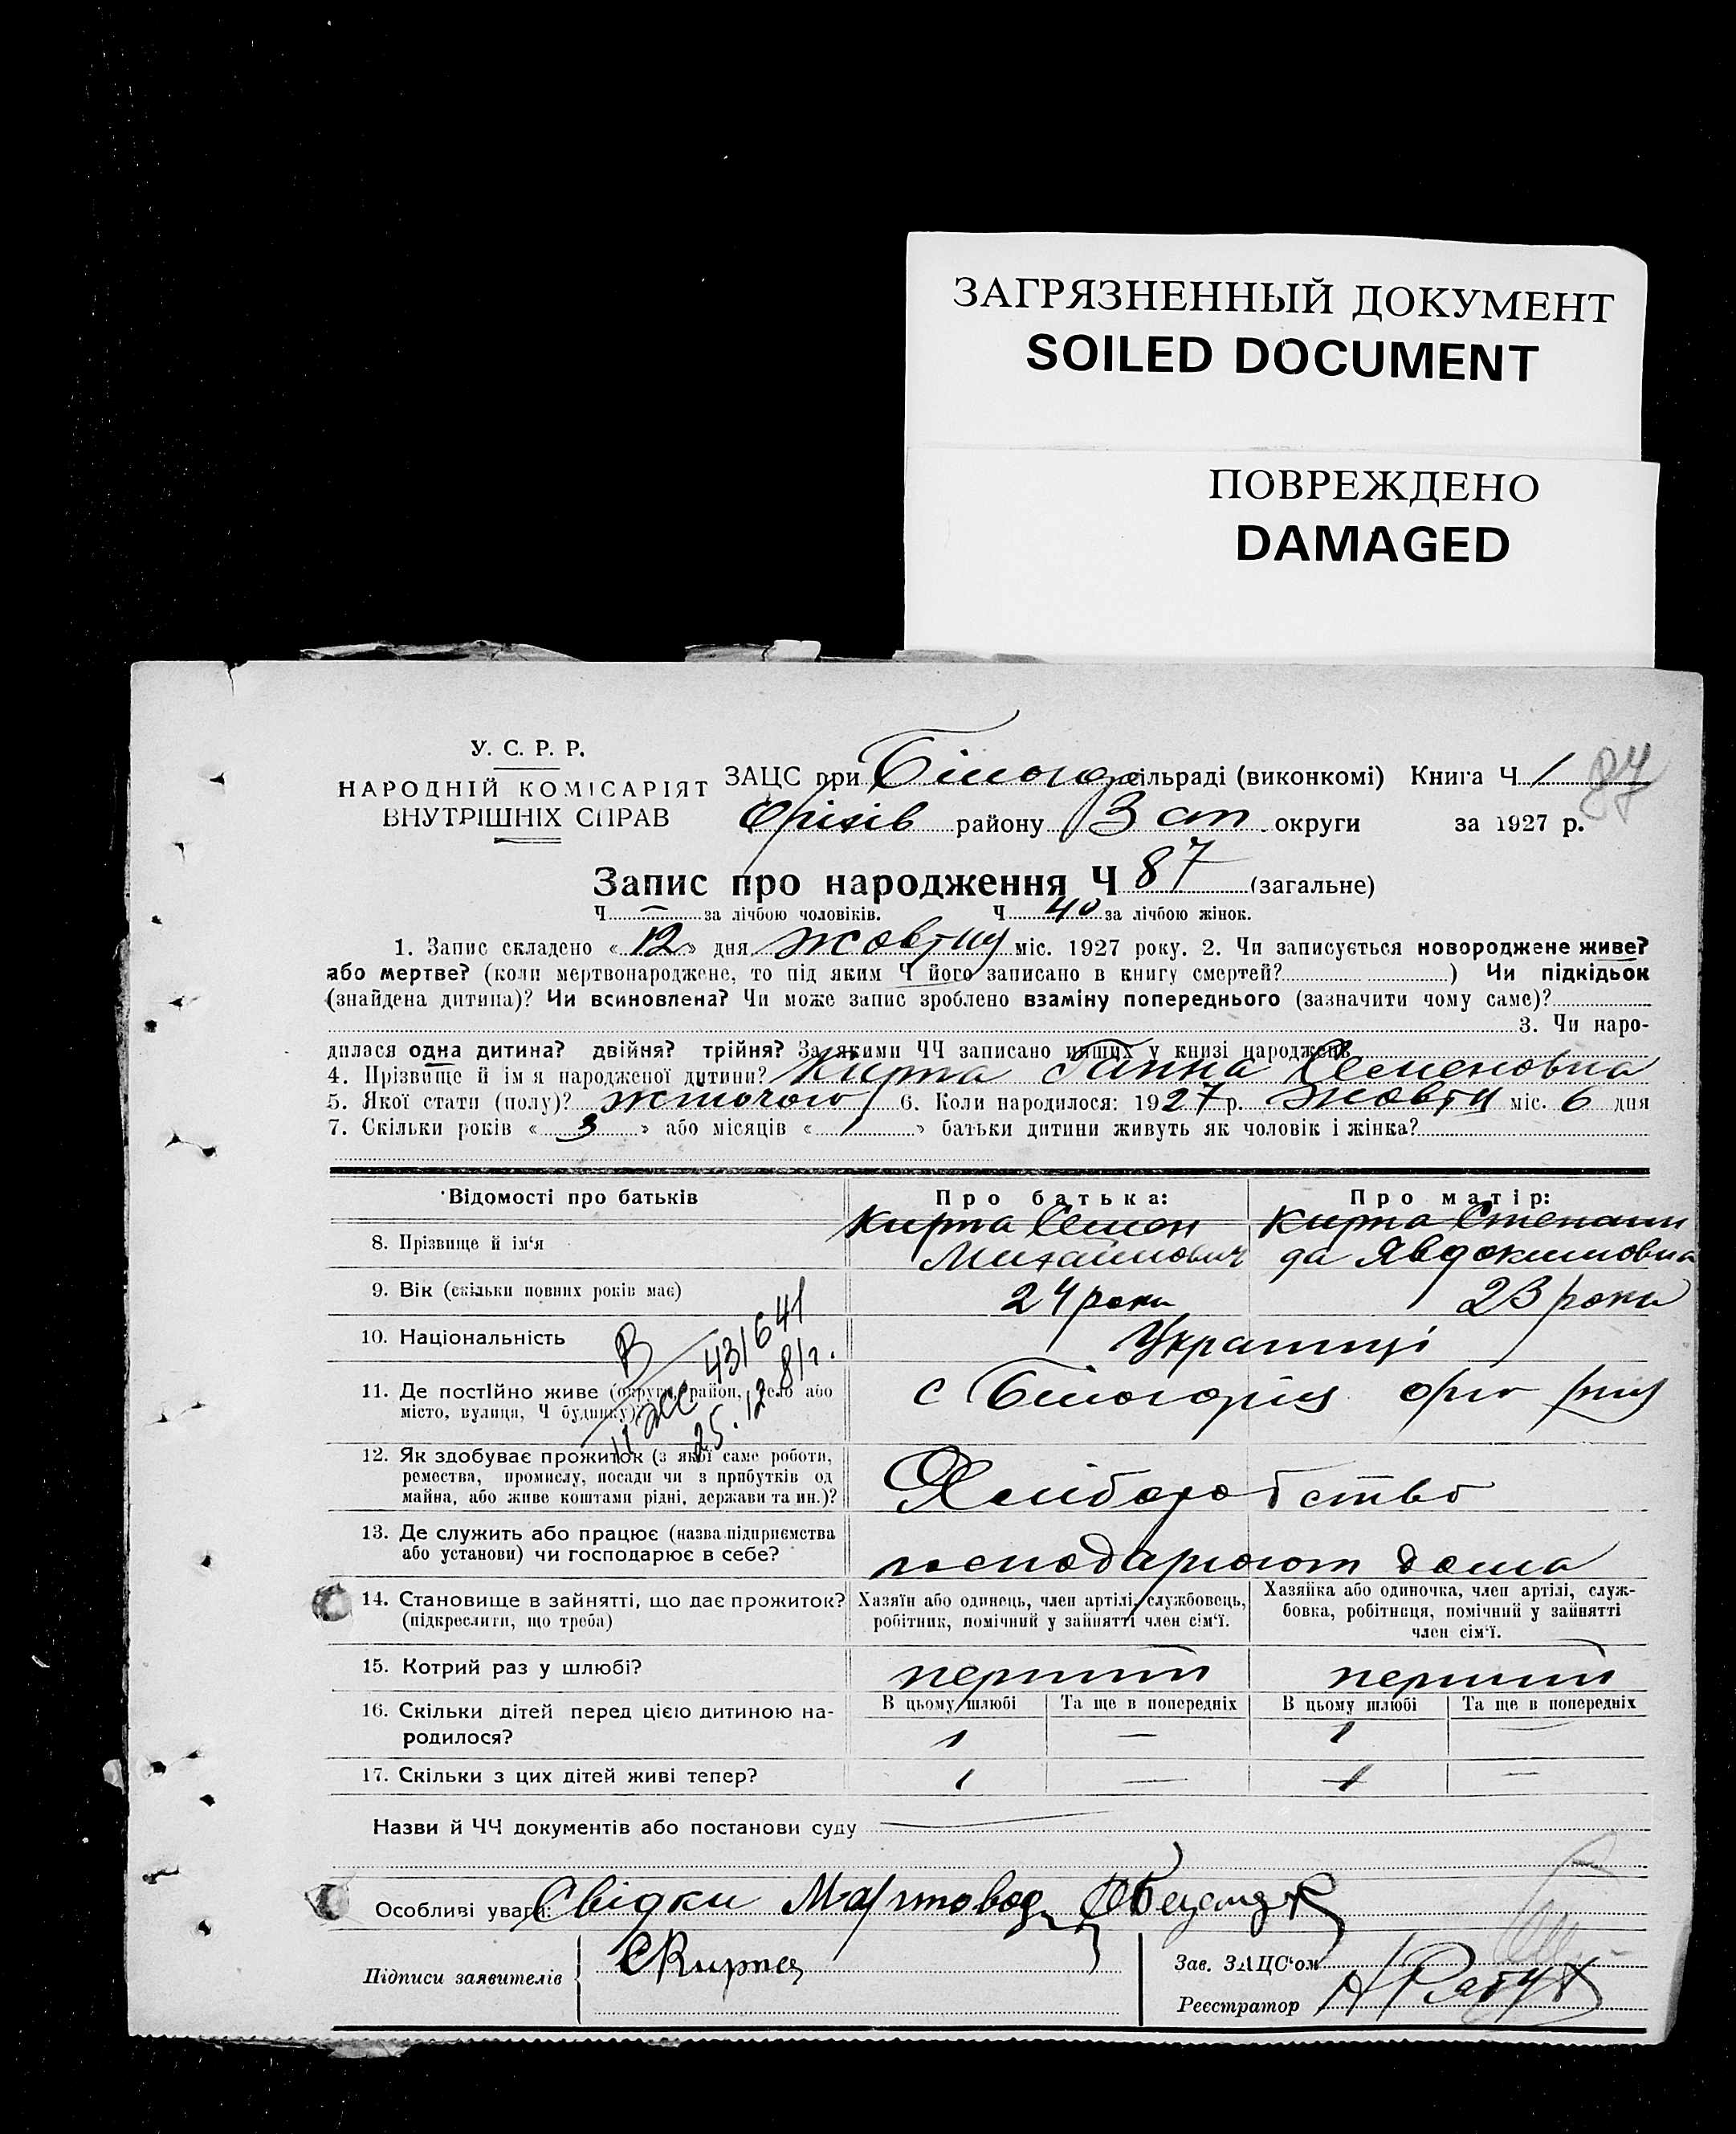 ЗАГРЯЗНЕННЫЙ ДОКУМЕНТ
SOILED DOCUMENT
ПОВРЕЖДЕНО
DAMAGED
У. С. Р. Р.
НАРОДНІЙ КОМІСАРІЯТ
ВНУТРІШНІХ СПРАВ
ЗАЦС при сільраді (виконкомі) Книга Ч 1 84
Оріхів району Зап. округи за 1927 р.
Запис про народження Ч 87 (загальне)
Ч — за лічбою чоловіків. Ч 40 за лічбою жінок.
1. Запис складено «12» дня жовтня міс. 1927 року. 2. Чи записується новороджене живе?
або мертве? (коли мертвонароджене, то під яким Ч його записано в книгу смертей? ) Чи підкідьок
(знайдена дитина)? Чи всиновлена? Чи може запис зроблено взаміну попереднього (зазначити чому саме)?
3. Чи наро-
дилася одна дитина? двійня? трійня? За якими ЧЧ записано инших у книзі народжень
4. Прізвище й імя народженої дитини? Кирпа Ганна Семеновна
5. Якої стати (полу)? жіночого 6. Коли народилося: 1927 р. жовтн міс. 6 дня
7. Скільки років «3» або місяців « » батьки дитини живуть як чоловік і жінка?
Відомості про батьків
Про батька:
Про матір:
8. Прізвище й ім'я
Кирпа Семен
Михайлович
Кирпа Степани
да Явдокимовна
9. Вік (скільки повних років має)
24 роки
23 роки
10. Національність
Українці
11. Де постійно живе (округи, район, село або
місто, вулиця, Ч будинку)?
с Білогорія
12. Як здобуває прожиток (з якої саме роботи,
ремества, промислу, посади чи з прибутків од
майна, або живе коштами рідні, держави та ин.)?
Хліборобство
431641
25.12.81г.
13. Де служить або працює (назва підприємства
або установи) чи господарює в себе?
господарюют дома
14. Становище в зайнятті, що дає прожиток?
(підкреслити, що треба)
Хазяїн або одинець, член артілі, службовець,
робітник, помічний у зайнятті член сім'ї.
Хазяйка або одиночка, член артілі, служ-
бовка, робітниця, помічний у зайнятті
член сім'ї.
15. Котрий раз у шлюбі?
перший
перший
16. Скільки дітей перед цією дитиною на-
родилося?
В цьому шлюбі
Та ще в попередніх
В цьому шлюбі
Та ще в попередніх
1 — 1 —
17. Скільки з цих дітей живі тепер?
1 — 1 —
Назви й ЧЧ документів або постанови суду
Особливі уваги: Свідки
Підписи заявителів
СКирпа
Зав. ЗАЦС'ом
Реєстратор